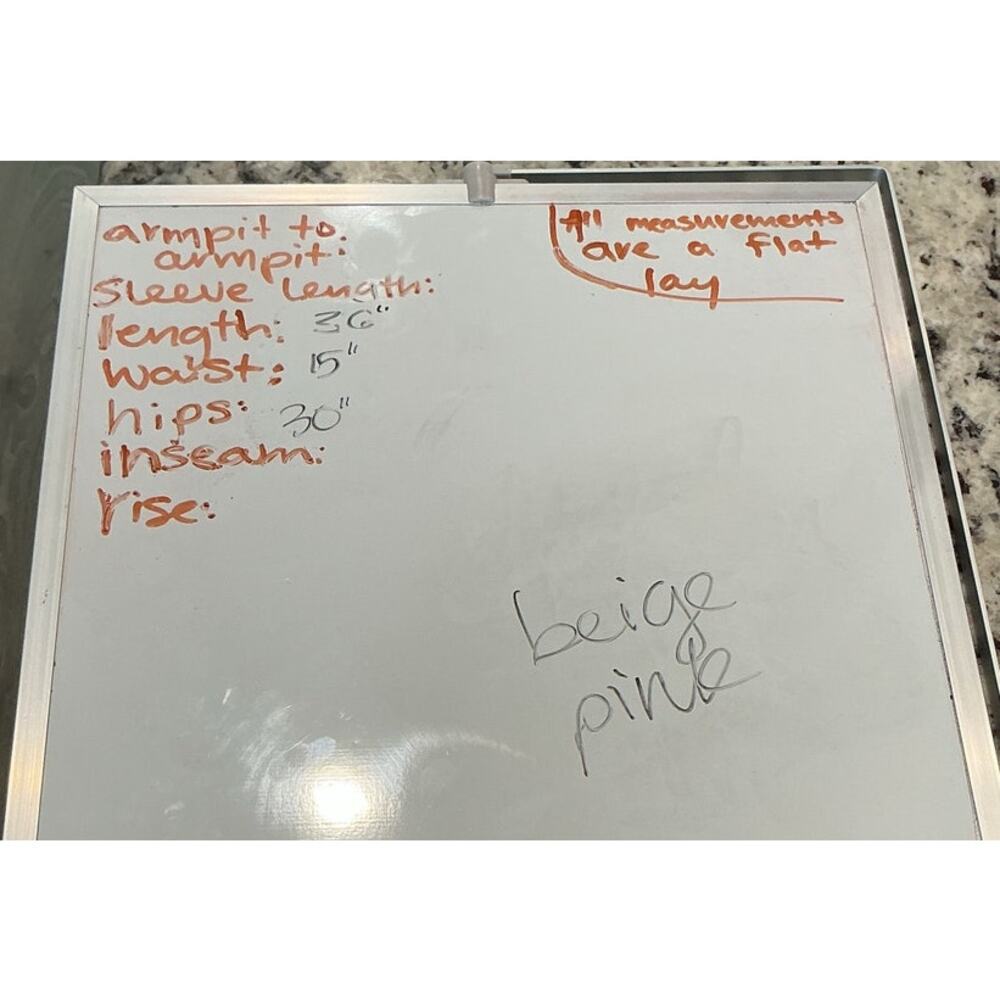 armpit to
armpit:
sleeve length:
length: 36"
waist: 15"
hips: 30"
inseam:
rise:
All measurements
are a flat
lay
beige
pink